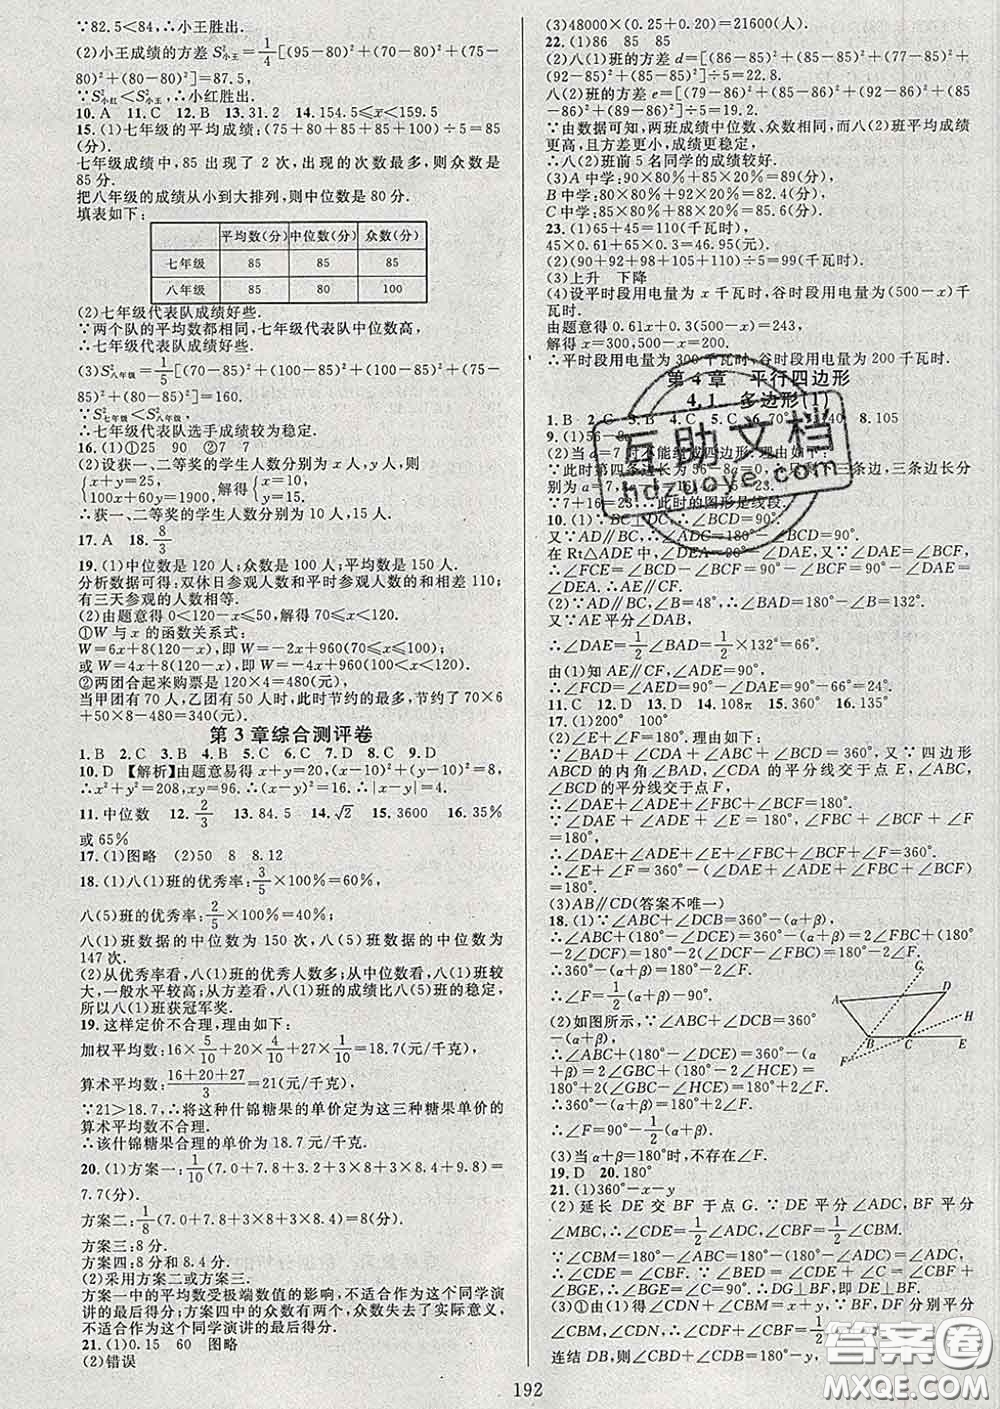 ∵82.5<84,∴小王胜出.
(2)小王成绩的方差S²小王=1/4[(95-80)²+(70-80)²+(75-
80)²+(80-80)²]=87.5,
∵S²小红<S²小王,∴小红胜出.
10.A 11.C 12.B 13.31.2 14.154.5≤x<159.5
15.(1)七年级的平均成绩:(75+80+85+85+100)÷5=85
(分).
七年级成绩中,85出现了2次,出现的次数最多,则众数是
85分.
把八年级的成绩从小到大排列,则中位数是80分.
填表如下:
平均数(分) 中位数(分) 众数(分)
七年级 85 85 85
八年级 85 80 100
(2)七年级代表队成绩好些.
∵两个队的平均数都相同,七年级代表队中位数高,
∴七年级代表队成绩好些.
(3)S²八年级=1/5[(70-85)²+(100-85)²+(100-85)²+(75-
85)²+(80-85)²]=160.
∵S²七年级<S²八年级,
∴七年级代表队选手成绩较为稳定.
16.(1)①25 90 ②7 7
(2)设获一、二等奖的学生人数分别为x人,y人,则
{x+y=25, 100x+60y=1900, 解得{x=10, y=15.
∴获一、二等奖的学生人数分别为10人,15人.
17.A 18.8/3
19.(1)中位数是120人;众数是100人;平均数是150人.
分析数据可得:双休日参观人数和平时参观人数的和相差110;
有三天参观的人数相等.
(2)由题意得0<120-x≤50,解得70≤x<120.
①W与x的函数关系式:
W=6x+8(120-x),即W=-2x+960(70≤x≤100);
或W=4x+8(120-x),即W=-4x+960(100<x<120).
②两团合起来购票是120×4=480(元),
当甲团有70人,乙团有50人时,此时节约的最多,节约了70×6
+50×8-480=340(元).
第3章综合测评卷
1.B 2.C 3.C 4.B 5.C 6.C 7.C 8.C 9.D
10.D 【解析】由题意易得x+y=20,(x-10)²+(y-10)²=8,
∴x²+y²=208,xy=96.∴(x-y)²=16.∴|x-y|=4.
11.中位数 12.2/3 13.84.5 14.√2 15.3600 16.35%
或65%
17.(1)图略 (2)50 8 8.12
18.(1)八(1)班的优秀率:3/5×100%=60%,
八(5)班的优秀率:2/5×100%=40%.
八(1)班数据的中位数为150次,八(5)班数据的中位数为
147次.
(2)从优秀率看,八(1)班的优秀人数多;从中位数看,八(1)班较
大,一般水平较高;八(1)班的成绩比八(5)班的稳定,
所以八(1)班获冠军奖.
19.这样定价不合理,理由如下:
加权平均数:16×5/10+20×4/10+27×1/10=18.7(元/千克).
算术平均数:(16+20+27)/3=21(元/千克).
∵21>18.7,∴将这种什锦糖果的单价定为这三种糖果单价的
算术平均数不合理.
∴该什锦糖果合理的单价为18.7元/千克.
20.(1)方案一:1/10(7.0+7.8+3.2+8+8.4+8.4+9.8)=
7.7(分).
方案二:1/8(7.0+7.8+8+8+8+8.4+8.4)=8(分).
方案三:8分.
方案四:8分和8.4分.
(2)采用方案二或方案三.
方案一中的平均数受极端数值的影响,不适合作为这个同学演
讲的最后得分;方案四中的众数有两个,众数失去了实际意义,
不适合作为这个同学演讲的最后得分.
21.(1)0.15 60 图略
(2)错误
(3)48000×(0.25+0.20)=21600(人).
22.(1)86 85 85
(2)八(1)班的方差d=[(86-85)²+(85-85)²+(77-85)²
+(92-85)²+(85-85)²]÷5=22.8.
八(2)班的方差e=[(79-86)²+(85-86)²+(92-86)²+(85
-86)²+(89-86)²]÷5=19.2.
∵由数据可知,两班成绩中位数、众数相同,而八(2)班平均成绩
更高,且方差更小,成绩更稳定,
∴八(2)班前5名同学的成绩较好.
(3)A中学:90×80%+85×20%=89(分),
B中学:80×80%+92×20%=82.4(分),
C中学:85×80%+88×20%=85.6(分).
23.(1)65+45=110(千瓦时),
45×0.61+65×0.3=46.95(元).
(2)(90+92+98+105+110)÷5=99(千瓦时).
(3)上升 下降
(4)设平时段用电量为x千瓦时,谷时段用电量为(500-x)千
瓦时.
由题意得0.61x+0.3(500-x)=243,
解得x=300,500-x=200.
∴平时段用电量为300千瓦时,谷时段用电量为200千瓦时.
第4章 平行四边形
4.1 多边形(1)
1.B 2.C 3.B 4.C 5.C 6.70° 7.140 8.105
9.(1)56-8a
(2)当a=7时不能组成四边形.理由如下:
∵此时第四条边长为56-8a=0,∴只剩下三条边,三条边长分
别为a=7,
∵7+16=23,∴此时的图形是线段.
10.(1)∵BC⊥DC,∴∠BCD=90°.
又∵AD∥BC,∴∠ADC=180°-∠BCD=90°.
在Rt△ADE中,∠DEA=90°-∠DAE,又∵∠DAE=∠BCF,
∴∠FCE=∠BCD-∠BCF=90°-∠BCF=90°-∠DAE=
∠DEA.∴AE∥CF.
(2)∵AD∥BC,∠B=48°,∴∠BAD=180°-∠B=132°.
又∵AE平分∠DAB,
∴∠DAE=1/2∠BAD=1/2×132°=66°.
由(1)知AE∥CF,∠ADE=90°.
∴∠FCD=∠AED=90°-∠DAE=90°-66°=24°.
11.C 12.D 13.D 14.108π 15.36° 16.135°
17.(1)200° 100°
(2)∠E+∠F=180°.理由如下:
∵∠BAD+∠CDA+∠ABC+∠BCD=360°,又∵四边形
ABCD的内角∠BAD,∠CDA的平分线交于点E,∠ABC,
∠BCD的平分线交于点F,
∴∠DAE+∠ADE+∠FBC+∠BCF=180°.
∵∠DAE+∠ADE+∠E=180°,∠FBC+∠BCF+∠F
=180°,
∴∠DAE+∠ADE+∠E+∠FBC+∠BCF+∠F=360°.
∴∠E+∠F=360°-(∠DAE+∠ADE+∠FBC+∠BCF)
=180°.
(3)AB∥CD(答案不唯一)
18.(1)∵∠ABC+∠DCB=360°-(α+β),
∴∠ABC+(180°-∠DCE)=360°-(α+β)=2∠FBC+
∴360°-(α+β)=180°-2∠F.
∴∠F=1/2(α+β)-90°.
(2)如图所示,∵∠ABC+∠DCB=360°
-(α+β),
∴∠ABC+(180°-∠DCE)=360°-(α+
β)=2∠GBC+(180°-2∠HCE)=180°+
2(∠GBC-∠HCE)=180°+2∠F.
∴360°-(α+β)=180°+2∠F.
∴∠F=90°-1/2(α+β).
(3)当α+β=180°时,不存在∠F.
A D G H B C E F
19.D 20.180°
21.(1)360°-x-y
(2)延长DE交BF于点G.∵DE平分∠ADC,BF平分
∠MBC,∴∠CDE=1/2∠ADC,∠CBF=1/2∠CBM.
∵∠CBM=180°-∠ABC=180°-(180°-∠ADC)=∠ADC,
∴∠CDE=∠CBF.∵∠BGE+∠CBF=∠CDE+
∠BGE=∴DG⊥BF,即DE⊥BF.
(3)①由(1)得∠CDN+∠CBM=x+y.∵BF,DF分别平分
∠CBM,∠CDN,∴∠CDF+∠CBF=1/2
连结DB,则∠CBD+∠CDB=180°-y,
192
互助文档
hdzuoye.com
答案圈
MXQE.COM